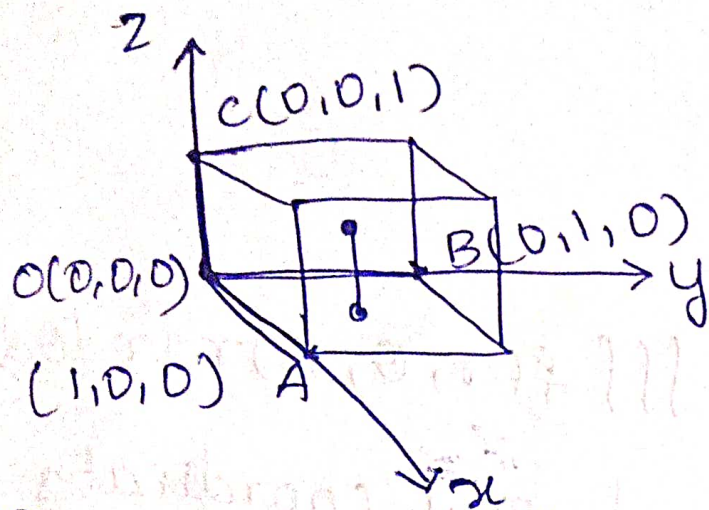 z
C(0,0,1)
B(0,1,0)
O(0,0,0)
y
(1,0,0) A
x